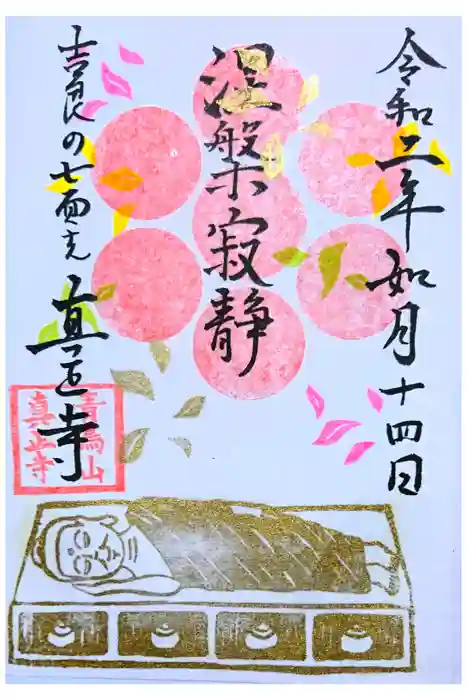 令和二年 如月十四日
涅槃寂静
吉良の七面天 真正寺
青鳥山
真正寺